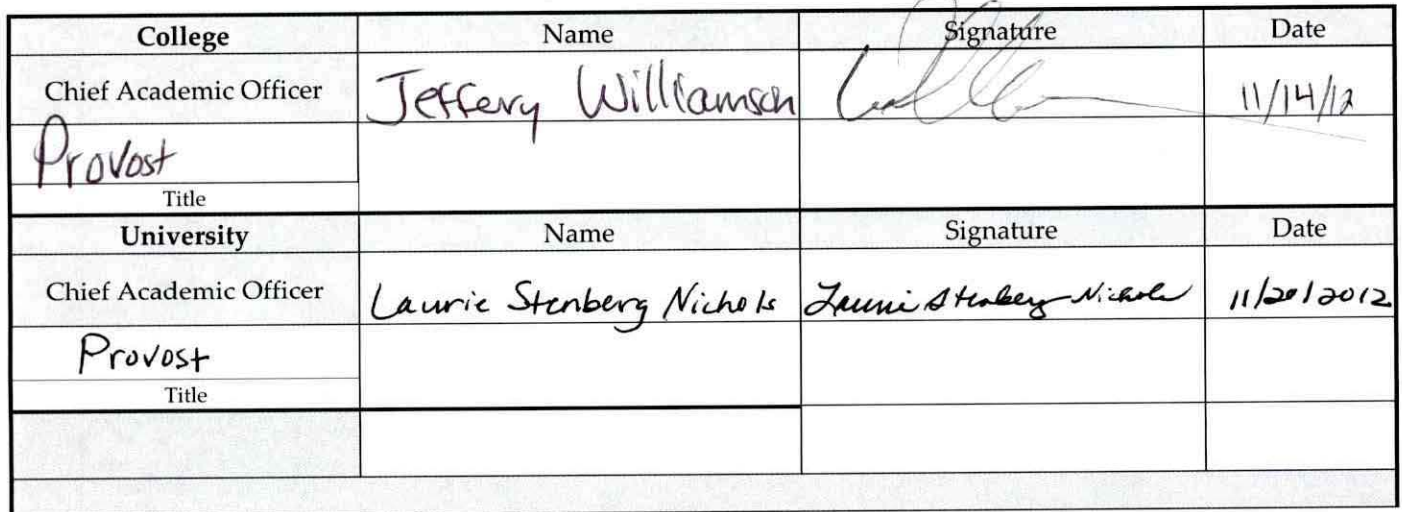 College Name Signature Date
Chief Academic Officer Jeffery Williamson 11/14/12
Provost
Title
University Name Signature Date
Chief Academic Officer Laurie Stenberg Nichols Laurie Stenberg Nichols 11/20/2012
Provost
Title